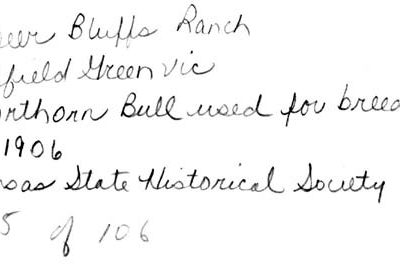 Bluffs Ranch
field Green vic
rthorn Bull used for breed
1906
sas State Historical Society
5 of 106